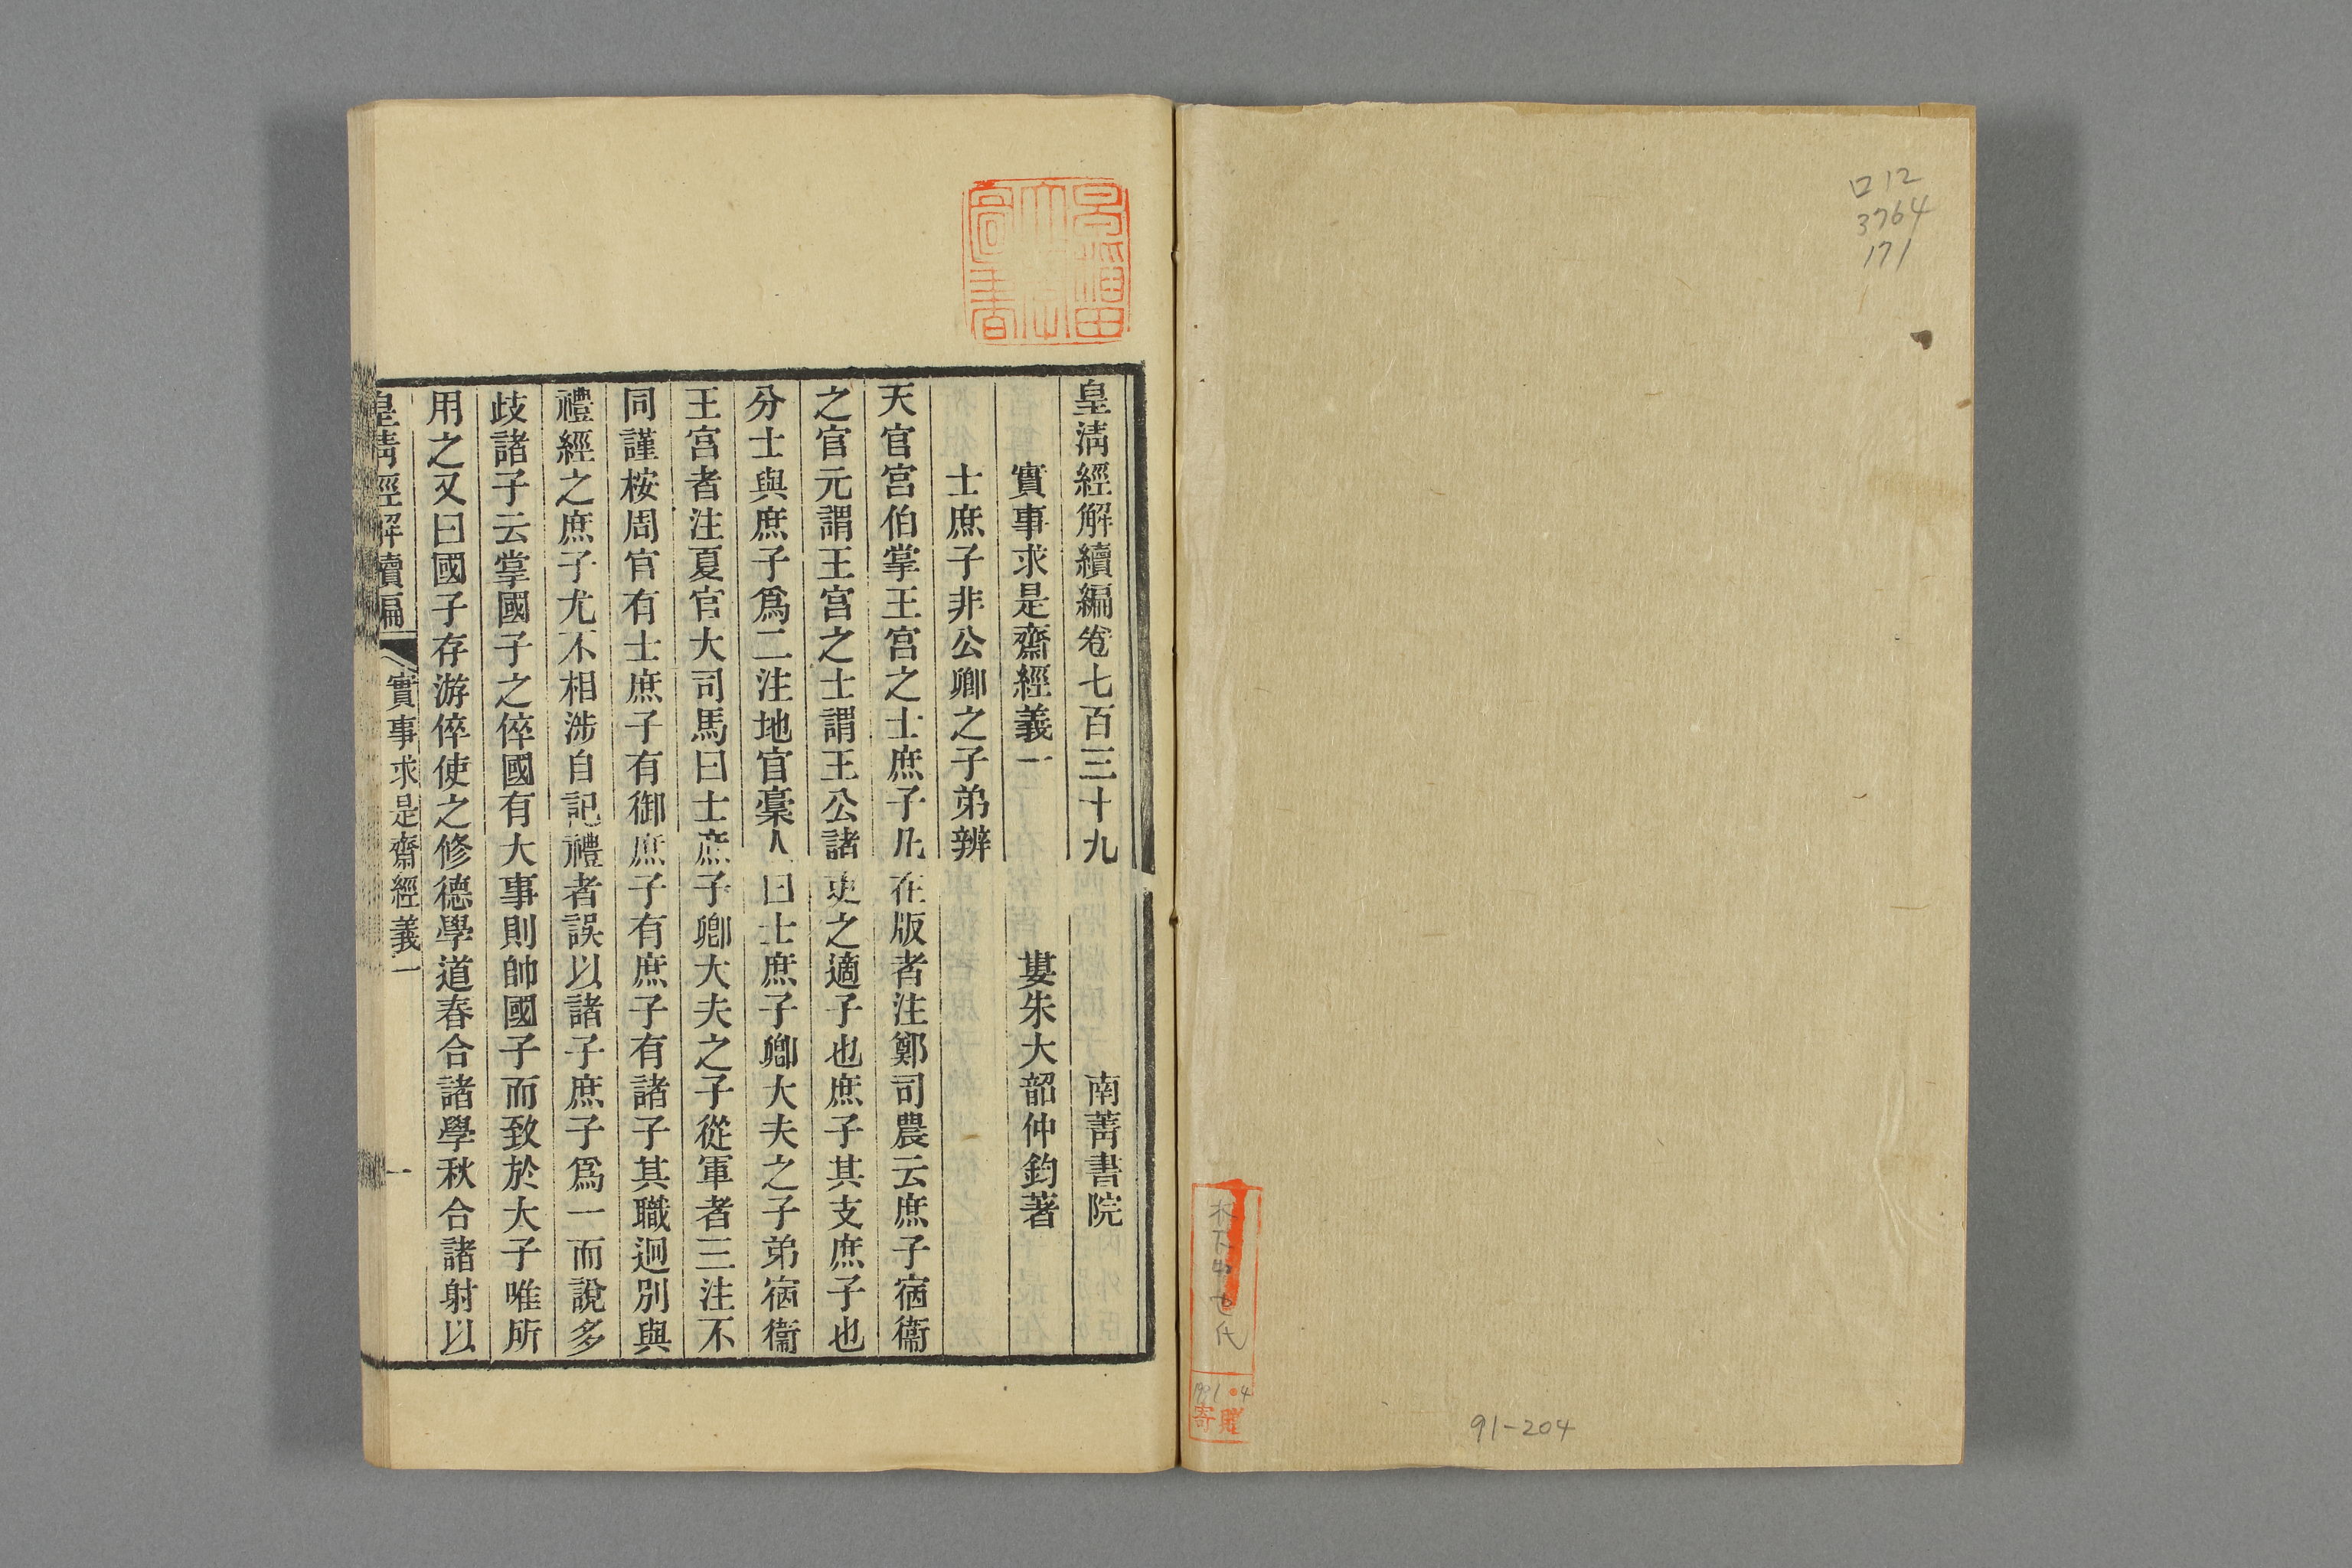 口12
3764
171
91-204
寄贈
早稲田
大學
圖書
皇清經解續編卷七百三十九 南菁書院
實事求是齋經義一 婁朱大韶仲鈞著
士庶子非公卿之子弟辨
天官宮伯掌王宮之士庶子凡在版者注鄭司農云庶子宿衞
之官元謂王宮之士謂王公諸吏之適子也庶子其支庶子也
分士與庶子爲二注地官槀人曰士庶子卿大夫之子弟宿衞
王宮者注夏官大司馬曰士庶子卿大夫之子從軍者三注不
同謹桉周官有士庶子有御庶子有庶子有諸子其職迥別與
禮經之庶子尤不相涉自記禮者誤以諸子庶子爲一而說多
歧諸子云掌國子之倅國有大事則帥國子而致於大子唯所
用之又曰國子存游倅使之修德學道春合諸學秋合諸射以
皇清經解續編 實事求是齋經義一 一